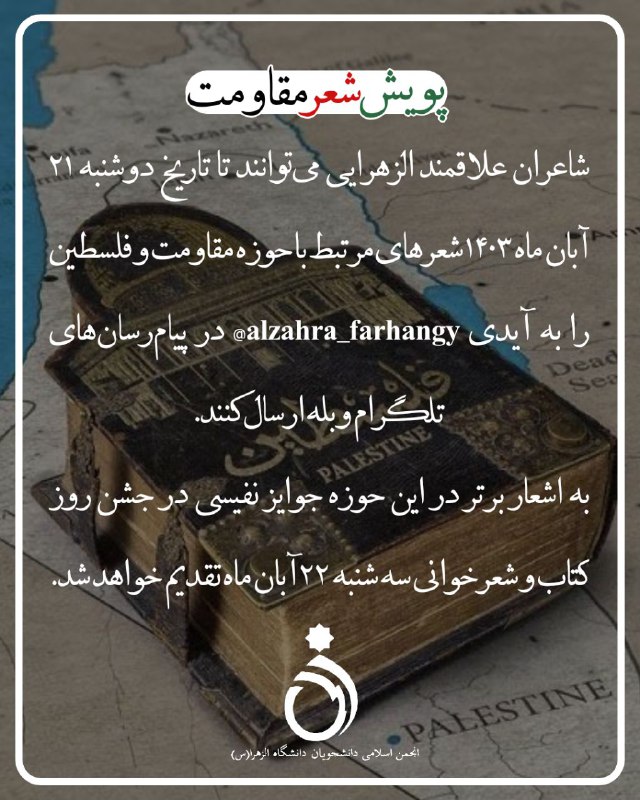 پویش شعر مقاومت
شاعران علاقمند الزهرایی می‌توانند تا تاریخ دوشنبه ۲۱
آبان ماه ۱۴۰۳ شعرهای مرتبط با حوزه مقاومت و فلسطین
را به آیدی alzahra_farhangy@ در پیام‌رسان‌های
تلگرام و بله ارسال کنند.
به اشعار برتر در این حوزه جوایز نفیسی در جشن روز
کتاب و شعرخوانی سه شنبه ۲۲ آبان ماه تقدیم خواهد شد.
Galilee
Nazareth
Haifa
Dead
Sea
فلسطین
PALESTINE
PALESTINE
انجمن اسلامی دانشجویان دانشگاه الزهرا(س)